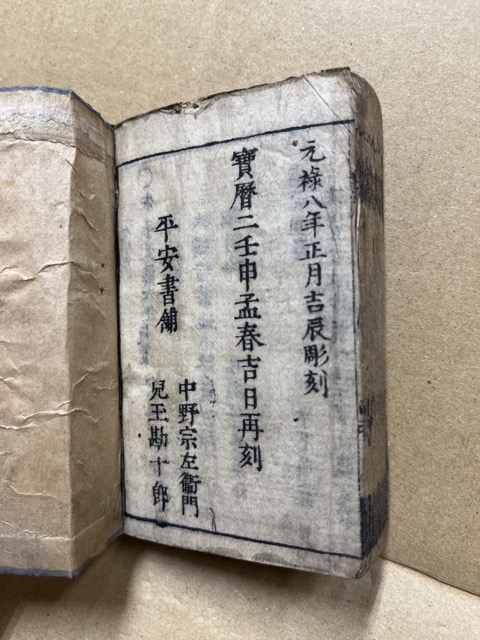 元祿八年正月吉辰彫刻
寶曆二壬申孟春吉日再刻
平安書舗
中野宗左衞門
兒玉勘十郎